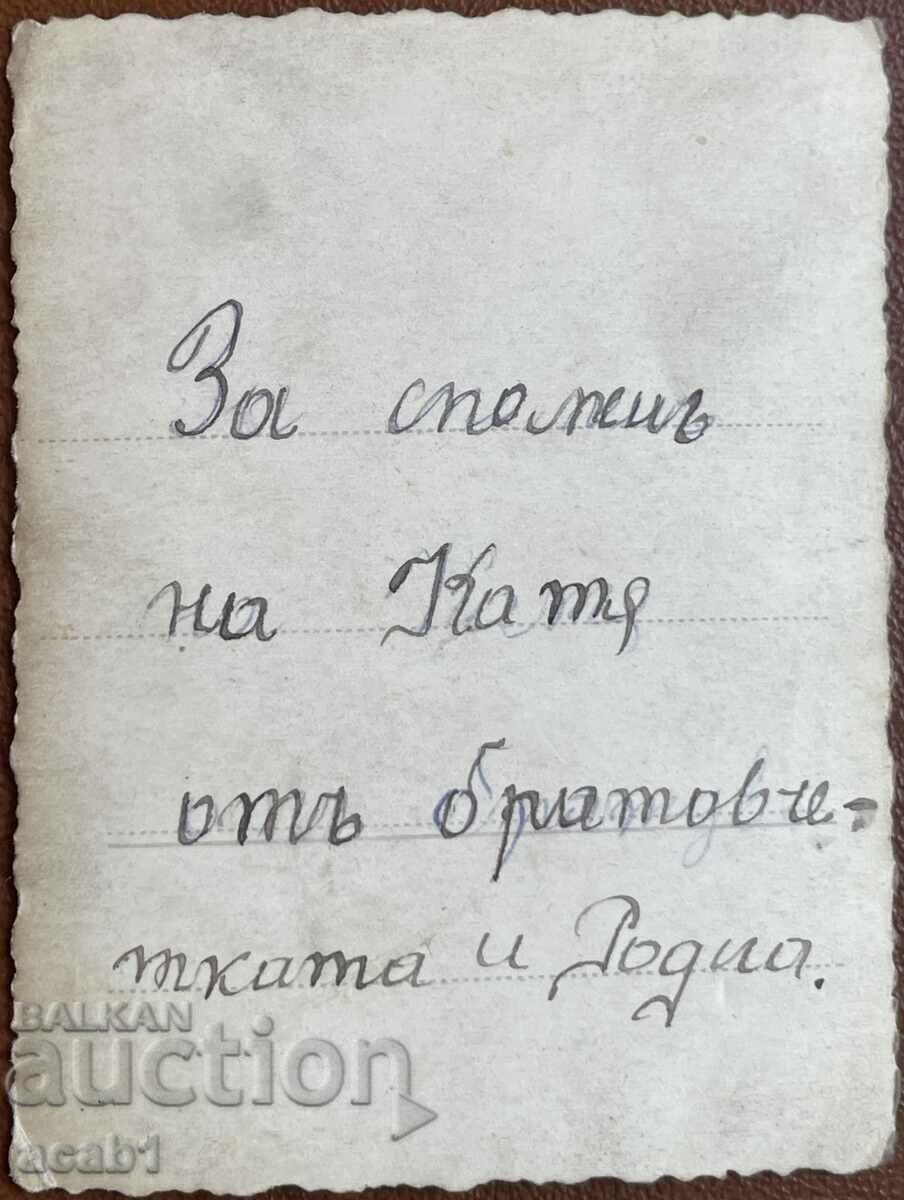 За споменъ
на Катя
отъ братовче-
тката и
BALKAN
auction
acab1